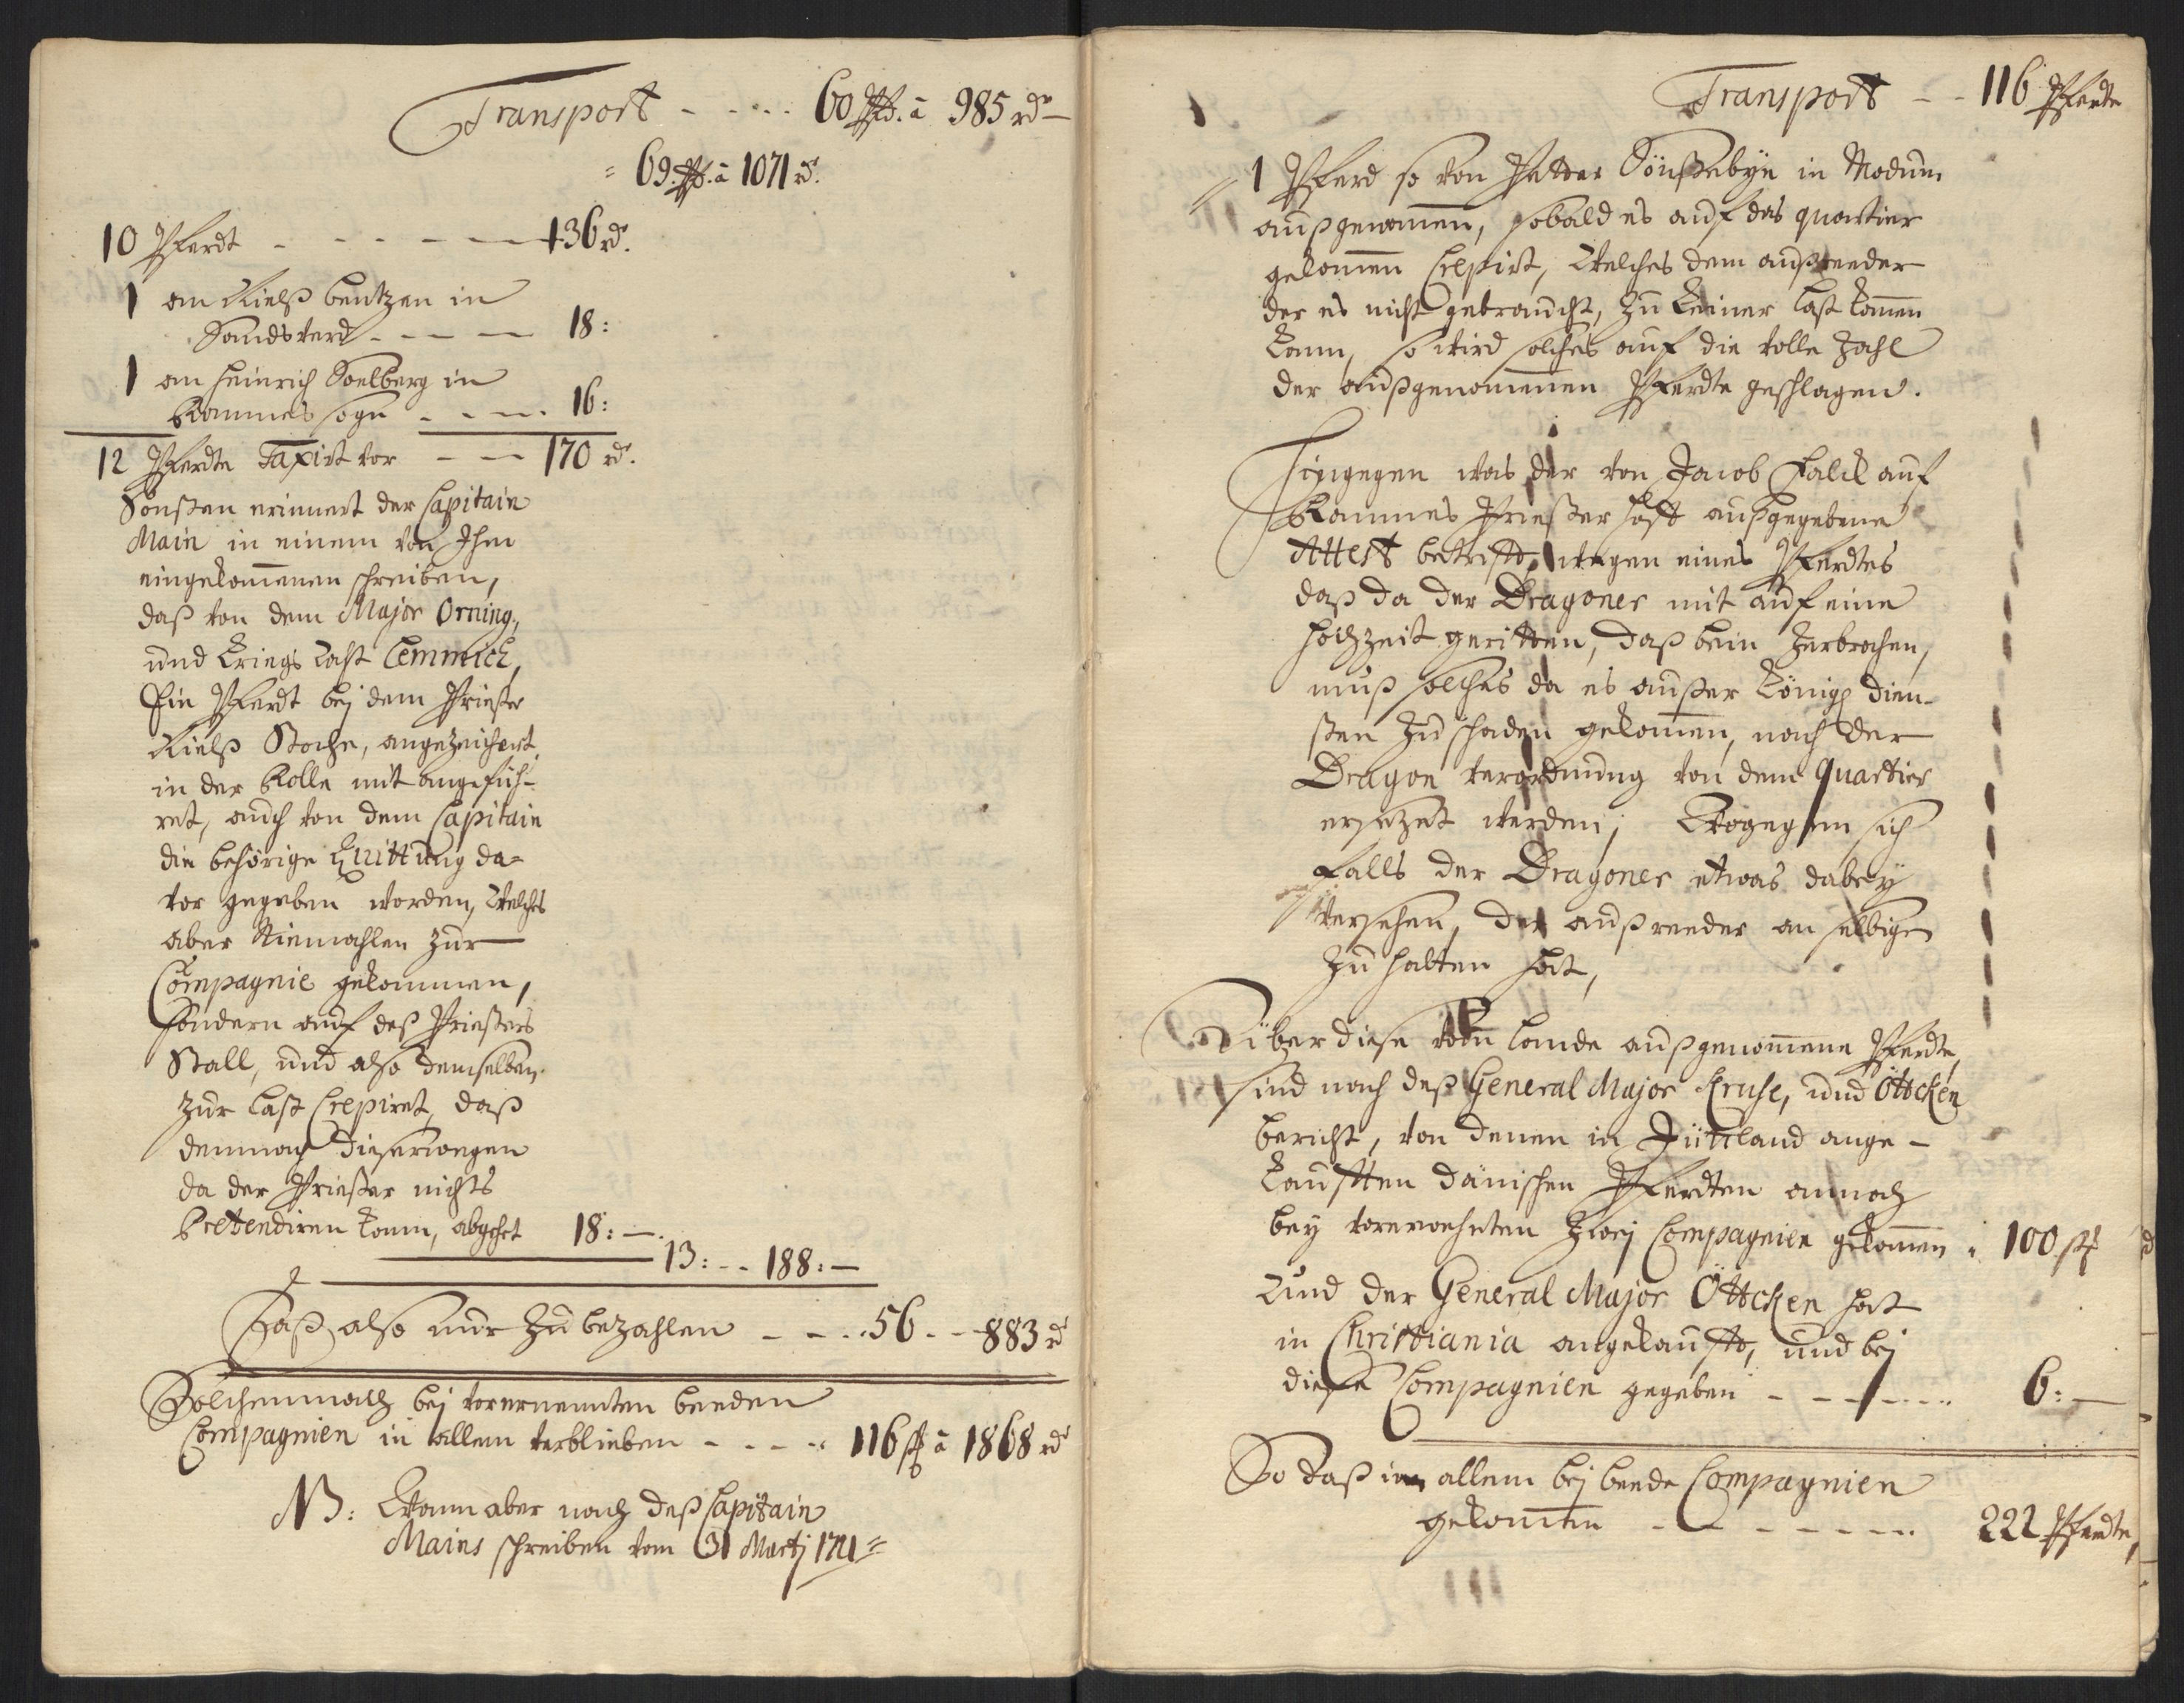 Transport - - - - 60 Pfd. à 985 rdr
= 69. Pfd. à 1071 rd.
10 Pferdt - - - - - - 136 rdr.
1 an Nielß bentzen in
Sandsverd - - - - 18:
1 an Heinrich Soelberg in
Rammes sogn - - - - 16:
12 Pferdte Taxirt vor - - - 170 rdr.
Sonsten erinnert der Capitain
Main in einem von Ihm
eingekommenen schreiben,
daß von dem Major Orning,
und Kriegs Casst Lemmich,
Ein Pferdt bej dem Priester
Nielß Stochs, angezeichnet,
in der Rolle mit angefüh-
ret, auch von dem Capitain
die behörige Quittung da-
vor gegeben worden, Welches
aber Niemahlen zur
Compagnie gekommen,
sondern auf deß Priesters
Stall, und also demselben
zur last Crepiret, daß
demnach dieserwegen
da der Priester nichts
prætendiren kann, abgehet 18: —
13: - - 188: —
Daß also nur zu bezahlen - - - 56 - - 883 rdr
Solchemnach bej vorernennten beeden
Compagnien in allem verblieben - - - - 116 st à 1868 rdr
NB: Wann aber nach deß Capitain
Mains schreiben vom 31 Martj 1711
Transport - - 116 Pferdte
1 Pferd so von Petter Sönstebye in Modum
außgenommen, sobald es auf das quartier
gekommen Crepirt, Welches dem außreeder
der es nicht gebraucht, zu keiner last kommen
kann, so wird solches auf die volle Zahl
der außgenommenen Pferdte geschlagen.
Hingegen was der von Jacob Falck auf
Rammes Priester hoff außgegebene
Attest betrifft, wegen eines Pferdtes
daß da der Dragoner mit auf eine
hochzeit geritten, daß bein Zerbrochen,
muß solches da es außer Königs dien-
sten zu schaden gekommen, nach der
Dragon verordnung von dem Quartier
ersezet werden; Wogegen sich
falls der Dragoner etwas dabey
versehen, der außreeder an selbigen
zu halten hat,
Über diese vom Lande außgenommene Pferdte,
sind nach deß General Major Kruse, und Öttcken
bericht, von denen in Jüttland ange-
kaufften dänischen Pferdten annoch
bey vorerwehnten Zwej Compagnien gekommen 100 st
Und der General Major Öttcken hat
in Christiania angekaufft, und bej
diese Compagnien gegeben - - - - - - 6: —
So daß in allem bej beede Compagnien
gekommen - - - - - - - 222 Pferdte,